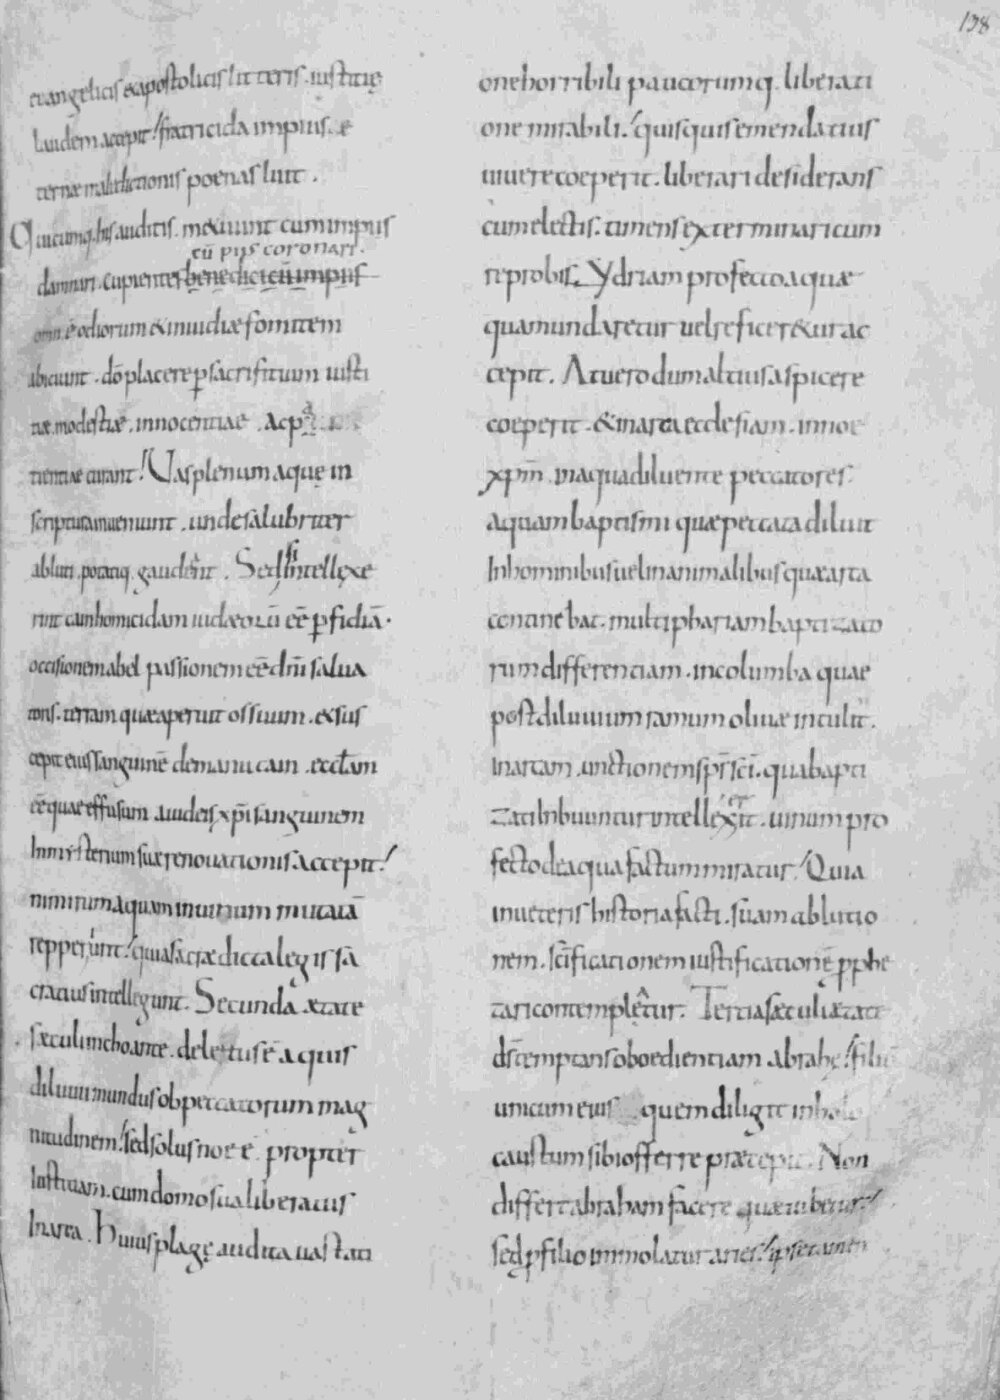 138
euangelicis & apostolicis litteris. iustitię
laudem accepit! fratricida impius. ę
ternæ maledictionis poenas luit.
Quicumq. his auditis. mex uiunt cum impiis
cū piis coronari.
damnari. cupientes benedici cū impiis
omnē odiorum & inuidiæ fomitem
abiciunt. dō placere p sacrificium iusti
tiæ. modestiæ. innocentiae. ac pa
tientiae curant! Vas plenum aquę in
scriptura inueniunt. unde salubriter
abluti. potatiq. gaudent. Sed si intellexe
rint cain homicidam iudæorū eē pfidiā.
occisionem abel passionem eē dn̄i salua
toris. terram quæ aperuit os suum. & sus
cepit eius sanguinē de manu cain. eccłam
eē quae effusum a iudeis xp̄i sanguinem
In mysterium suæ renouationis accepit!
nimirum aquam in uinum mutatā
reppererunt! quia sacræ dicta legis sā
cratius intellegunt. Secunda ætate
sæculi inchoante. deletus ē aquis
diluuii mundus ob peccatorum mag
nitudinem! sed solus noe ē propter
Iustitiam. cum domo sua liberatus
In arca. Huius plagę audita uastati
one horribili paucorumq. liberati
one mirabili! quisquis emendatius
uiuere coeperit. liberari desiderans
cum electis. timens exterminari cum
reprobis. Ydriam profecto aquæ
qua mundaretur uel reficeretur ac
cepit. At uero dum altius aspicere
coeperit. & in arca ecclesiam. in noe
xp̄m. in aqua diluente peccatores.
aquam baptismi quæ peccata diluit
In hominibus uel in animalibus quæ arca
continebat. multiphariam baptizato
rum differentiam. in columba quae
post diluuium ramum oliuæ intulit.
In arcam. unctionem sp̄s sc̄i. qua bapti
zati Inbuuntur intellexerit. uinum pro
fecto de aqua factum miratur! Quia
in ueteris historia facti. suam ablutio
nem. sc̄ificationem iustificationē pphe
tari contempletur. Tertia sæculi ætate
ds̄ temptans oboedientiam abrahę! filiū
unicum eius quem diligit in holo
caustum sibi offerre præcepit. Non
differt abraham facere quæ iubetur!
sed p filio immolatur aries! ipse tamen